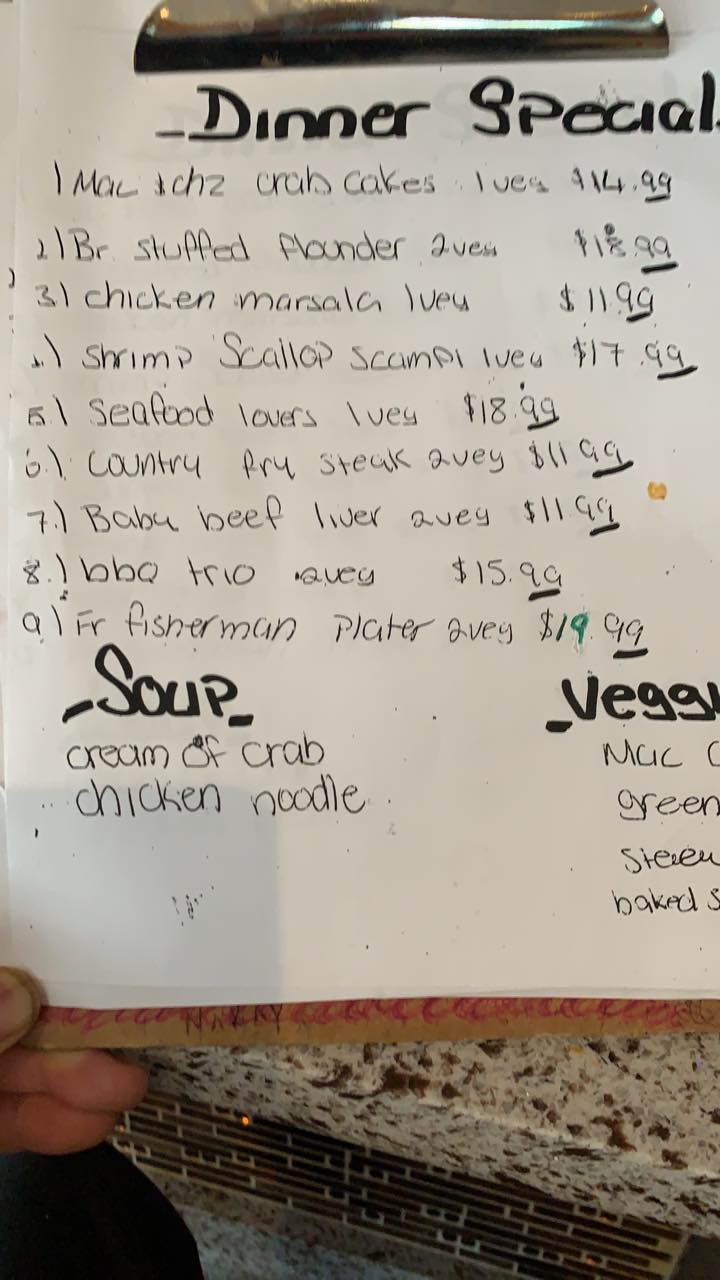 Dinner Special
1) Mac & chz crab cakes 1 veg $14.99
2) Br stuffed flounder 2veg $18.99
3) chicken marsala 1veg $11.99
.) Shrimp Scallop Scampi 1veg $17.99
5.) Seafood lovers 1veg $18.99
6.) Country fry steak 2veg $11.99
7.) Baby beef liver 2veg $11.99
8.) bbq trio 2veg $15.99
9) Fr fisherman Plater 2veg $19.99
Soup
Veggi
cream of crab
Mac
chicken noodle
green
baked s